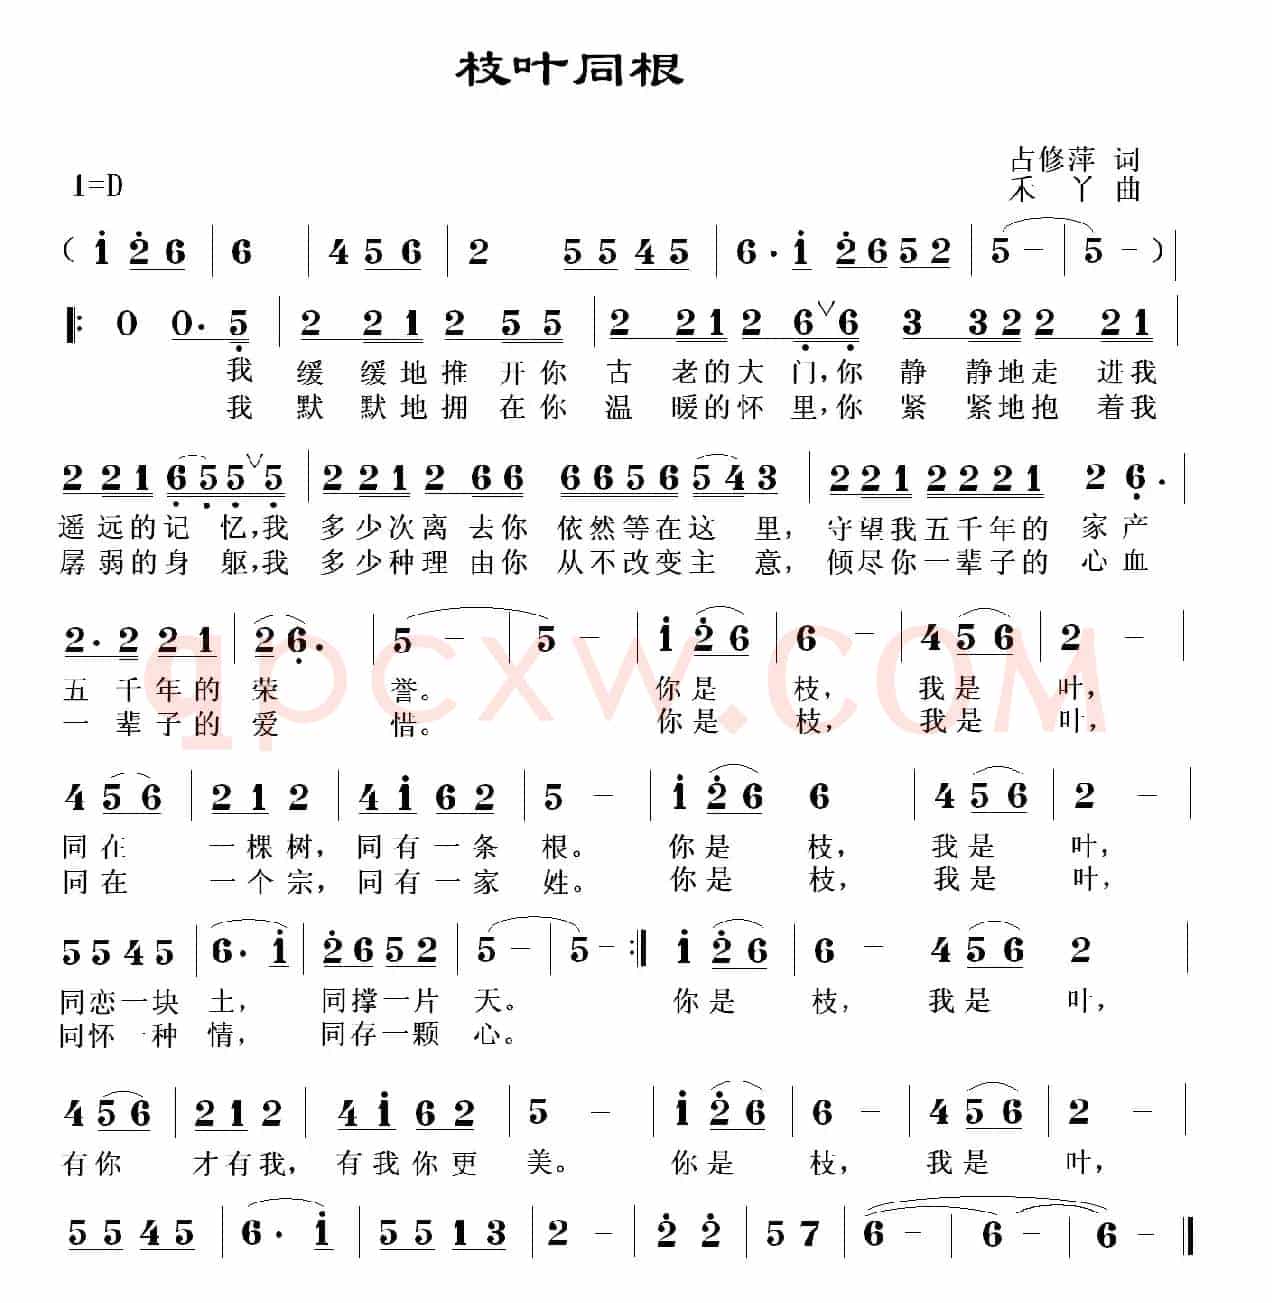 枝叶同根
占修萍 词
1=D
禾 丫 曲
( i 2 6 | 6 | 4 5 6 | 2 5 5 4 5 | 6 . i 2 6 5 2 | 5 - | 5 - ) |
|: 0 0. 5 | 2 2 1 2 5 5 | 2 2 1 2 6 ∨ 6 3 3 2 2 2 1 |
我 缓 缓地推 开你 古 老的大 门,你 静 静地走 进我
我 默 默地拥 在你 温 暖的怀 里,你 紧 紧地抱 着我
2 2 1 6 5 5 ∨ 5 | 2 2 1 2 6 6 6 6 5 6 5 4 3 | 2 2 1 2 2 2 1 2 6. |
遥远的记 忆,我 多少次离 去你 依然等在这 里, 守望我五千年的 家产
孱弱的身 躯,我 多少种理 由你 从不改变主 意, 倾尽你一辈子的 心血
2. 2 2 1 | 2 6. | 5 - | 5 - | i 2 6 | 6 - | 4 5 6 | 2 - |
五 千年的 荣 誉。 你是 枝, 我是 叶,
一 辈子的 爱 惜。 你是 枝, 我是 叶,
qpcxw.COM
4 5 6 | 2 1 2 | 4 i 6 2 | 5 - | i 2 6 6 | 4 5 6 | 2 - |
同在 一棵树, 同有一条 根。 你是 枝, 我是 叶,
同在 一个宗, 同有一家 姓。 你是 枝, 我是 叶,
5 5 4 5 | 6. i | 2 6 5 2 | 5 - | 5 - :| i 2 6 | 6 - 4 5 6 | 2 |
同恋一块 土, 同撑一片 天。 你是 枝, 我是 叶,
同怀一种 情, 同存一颗 心。
4 5 6 | 2 1 2 | 4 i 6 2 | 5 - | i 2 6 | 6 - | 4 5 6 | 2 - |
有你 才有我, 有我你更 美。 你是 枝, 我是 叶,
5 5 4 5 | 6. i | 5 5 1 3 | 2 - | 2 2 | 5 7 | 6 - | 6 - | 6 - ‖